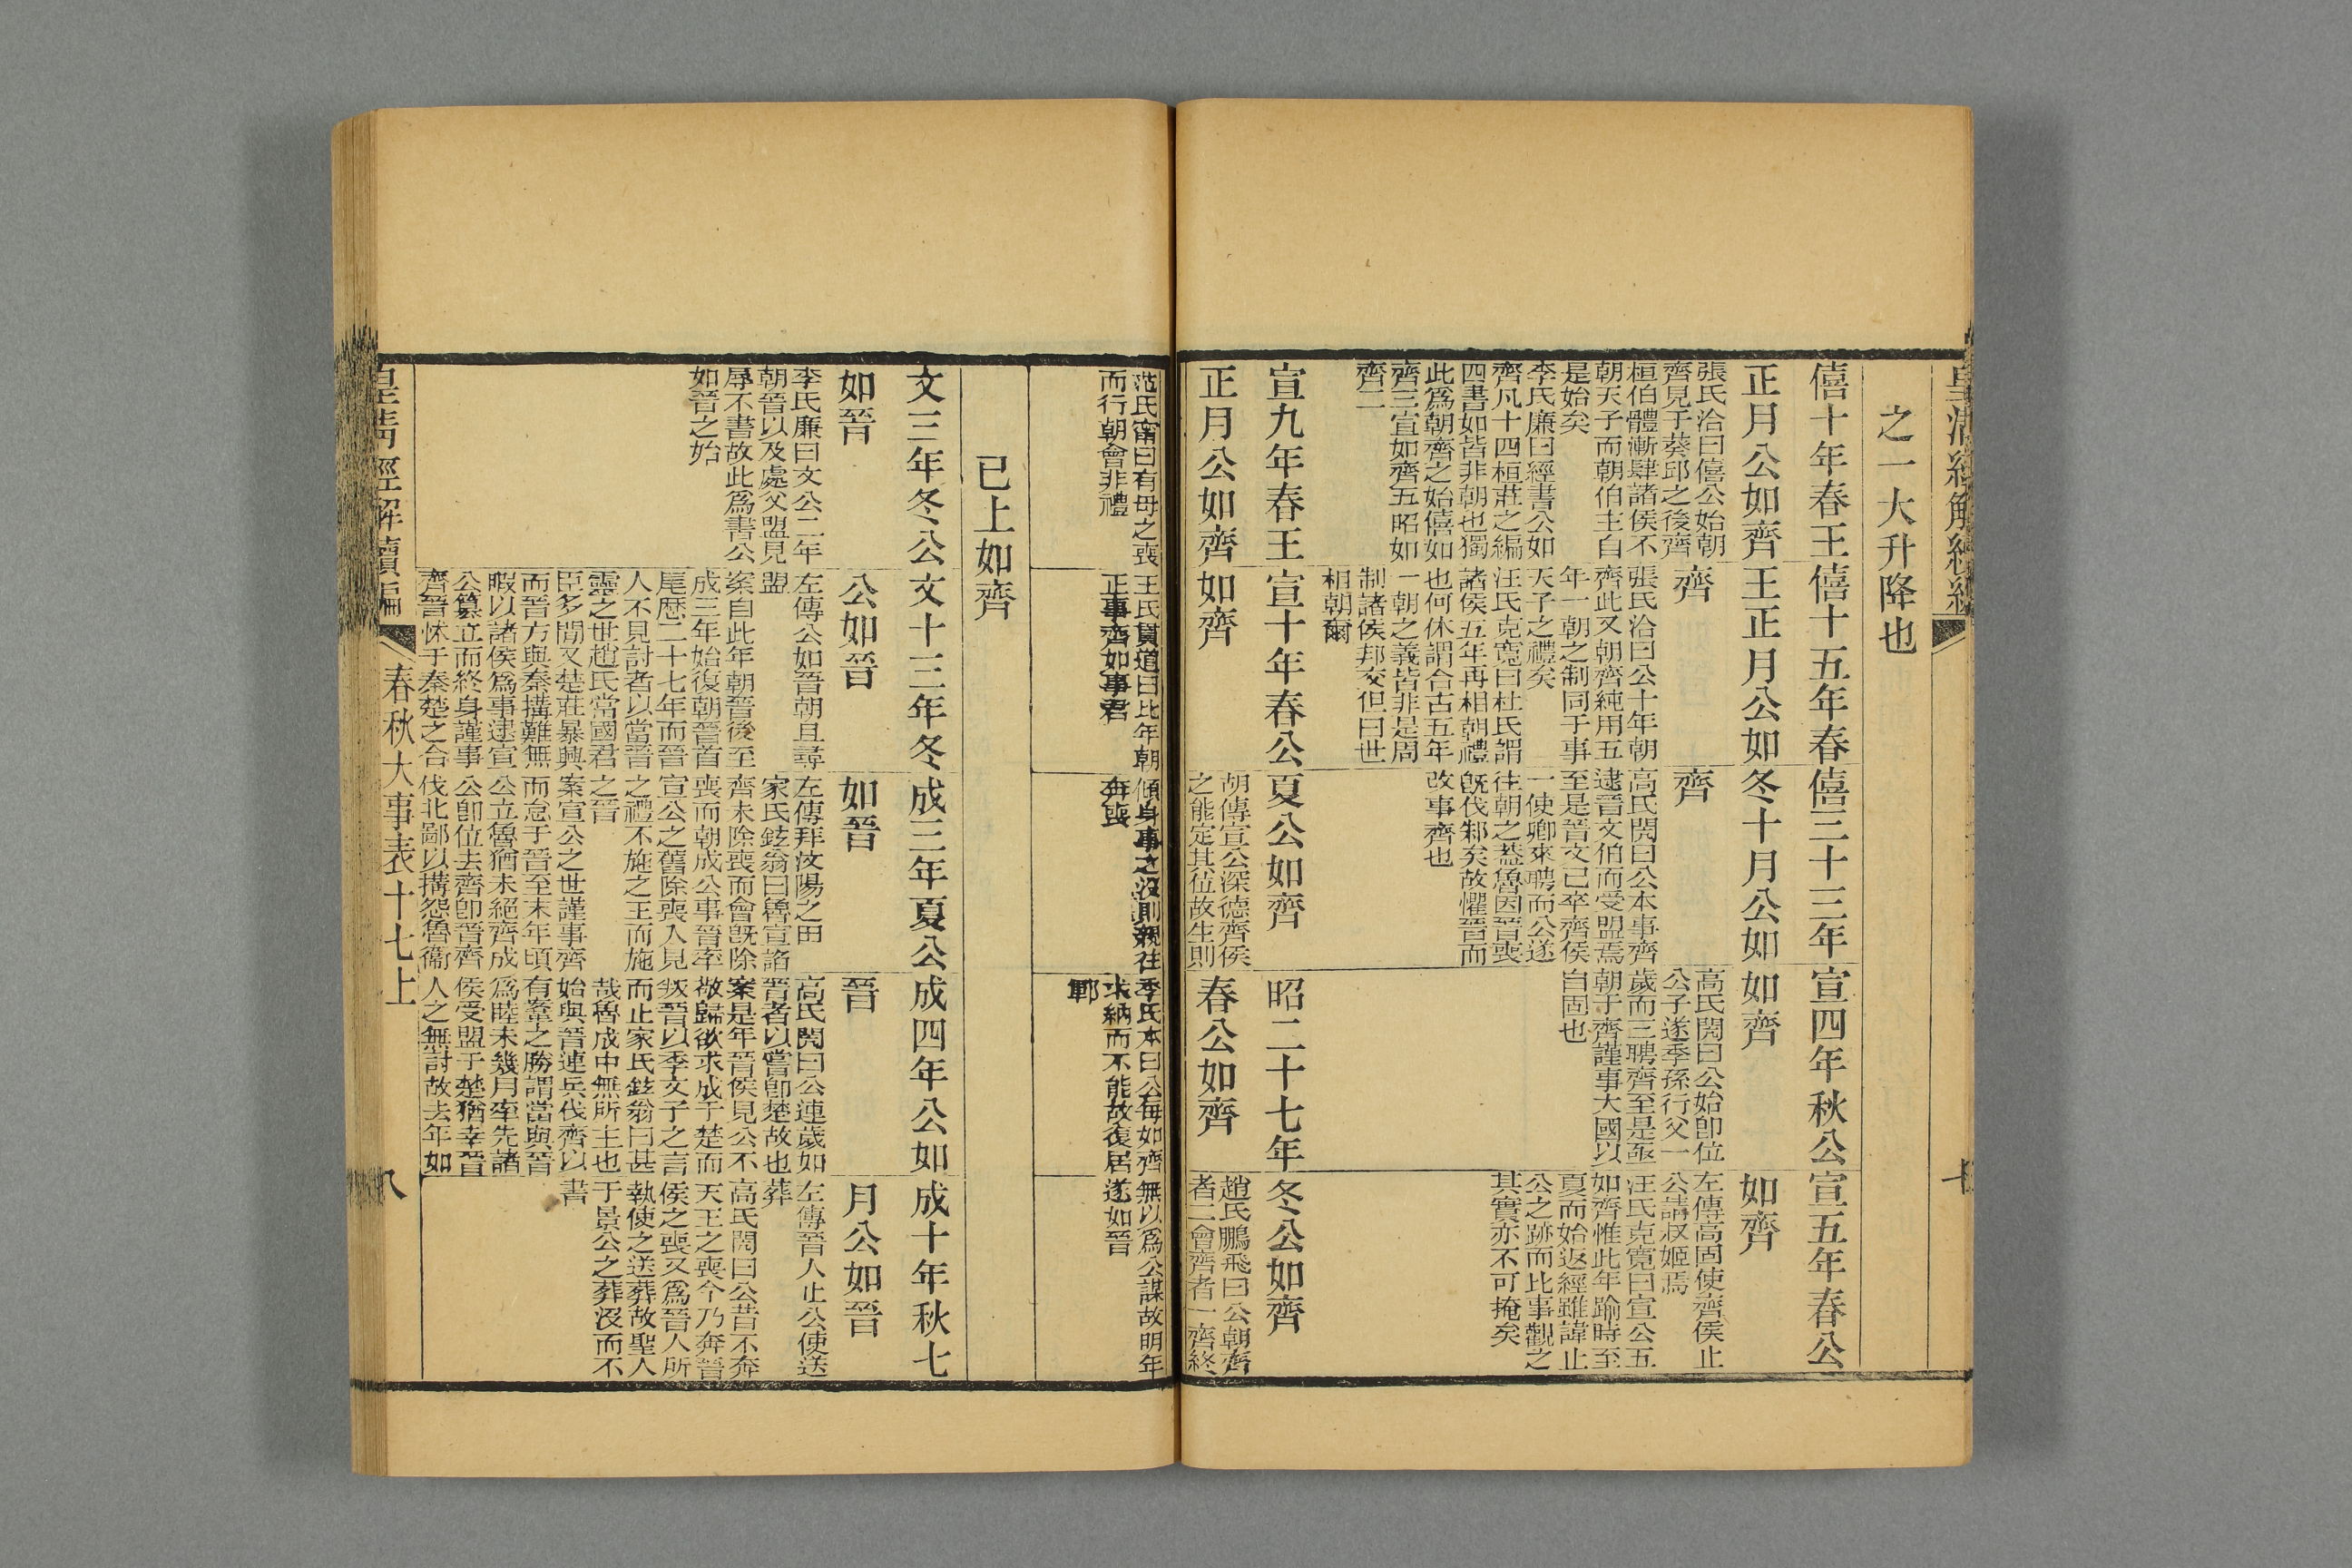 皇清經解續
之一大升降也
僖十年春王
正月公如齊
張氏洽曰僖公始朝
齊見于葵邱之後齊
桓伯體漸肆諸侯不
朝天子而朝伯主自
是始矣
李氏廉曰經書公如
齊凡十四桓莊之編
四書如皆非朝也獨
此為朝齊之始僖如
齊三宣如齊五昭如
齊二
僖十五年春
王正月公如
齊
張氏洽曰公十年朝
齊此又朝齊純用五
年一朝之制同于事
天子之禮矣
汪氏克寬曰杜氏謂
諸侯五年再相朝禮
也何休謂合古五年
一朝之義皆非是周
制諸侯邦交但曰世
相朝爾
僖三十三年
冬十月公如
齊
高氏閌曰公本事齊
逮晉文伯而受盟焉
至是晉文已卒齊侯
一使卿來聘而公遂
往朝之蓋魯因晉喪
既伐邾矣故懼晉而
改事齊也
宣四年秋公
如齊
高氏閌曰公始卽位
公子遂季孫行父一
歲而三聘齊至是亟
朝于齊謹事大國以
自固也
宣五年春公
如齊
左傳高固使齊侯止
公請叔姬焉
汪氏克寬曰宣公五
如齊惟此年踰時至
夏而始返經雖諱止
公之跡而比事觀之
其實亦不可掩矣
宣九年春王
正月公如齊
宣十年春公
如齊
夏公如齊
胡傳宣公深德齊侯
之能定其位故生則
昭二十七年
春公如齊
冬公如齊
趙氏鵬飛曰公朝齊
者二會齊者一齊終
范氏甯曰有母之喪
而行朝會非禮
王氏貫道曰比年朝
正事齊如事君
傾身事之沒則親往
奔喪
季氏本曰公每如齊
求納而不能故復居
鄆
無以為公謀故明年
遂如晉
已上如齊
文三年冬公
如晉
李氏廉曰文公二年
朝晉以及處父盟見
辱不書故此為書公
如晉之始
文十三年冬
公如晉
左傳公如晉朝且尋
盟
案自此年朝晉後至
成三年始復朝晉首
尾歷二十七年而晉
人不見討者以當晉
靈之世趙氏當國君
臣多閒又楚莊暴興
而晉方與秦搆難無
暇以諸侯為事逮宣
公篡立而終身謹事
齊晉怵于秦楚之合
成三年夏公
如晉
左傳拜汶陽之田
家氏鉉翁曰魯宣諂
齊未除喪而會既除
喪而朝成公事晉率
宣公之舊除喪入見
之禮不施之王而施
之晉
案宣公之世謹事齊
而怠于晉至末年頃
公立魯猶未絕齊成
公卽位去齊卽晉齊
伐北鄙以搆怨魯衞
成四年公如
晉
高氏閌曰公連歲如
晉者以嘗卽楚故也
案是年晉侯見公不
敬歸欲求成于楚而
叛晉以季文子之言
而止家氏鉉翁曰甚
哉魯成中無所主也
始與晉連兵伐齊以
有鞌之勝謂當與晉
為睦未幾月率先諸
侯受盟于楚猶幸晉
人之無討故去年如
成十年秋七
月公如晉
左傳晉人止公使送
葬
高氏閌曰公昔不奔
天王之喪今乃奔晉
侯之喪又為晉人所
執使之送葬故聖人
于景公之葬沒而不
書
皇清經解續編
春秋大事表十七上
八